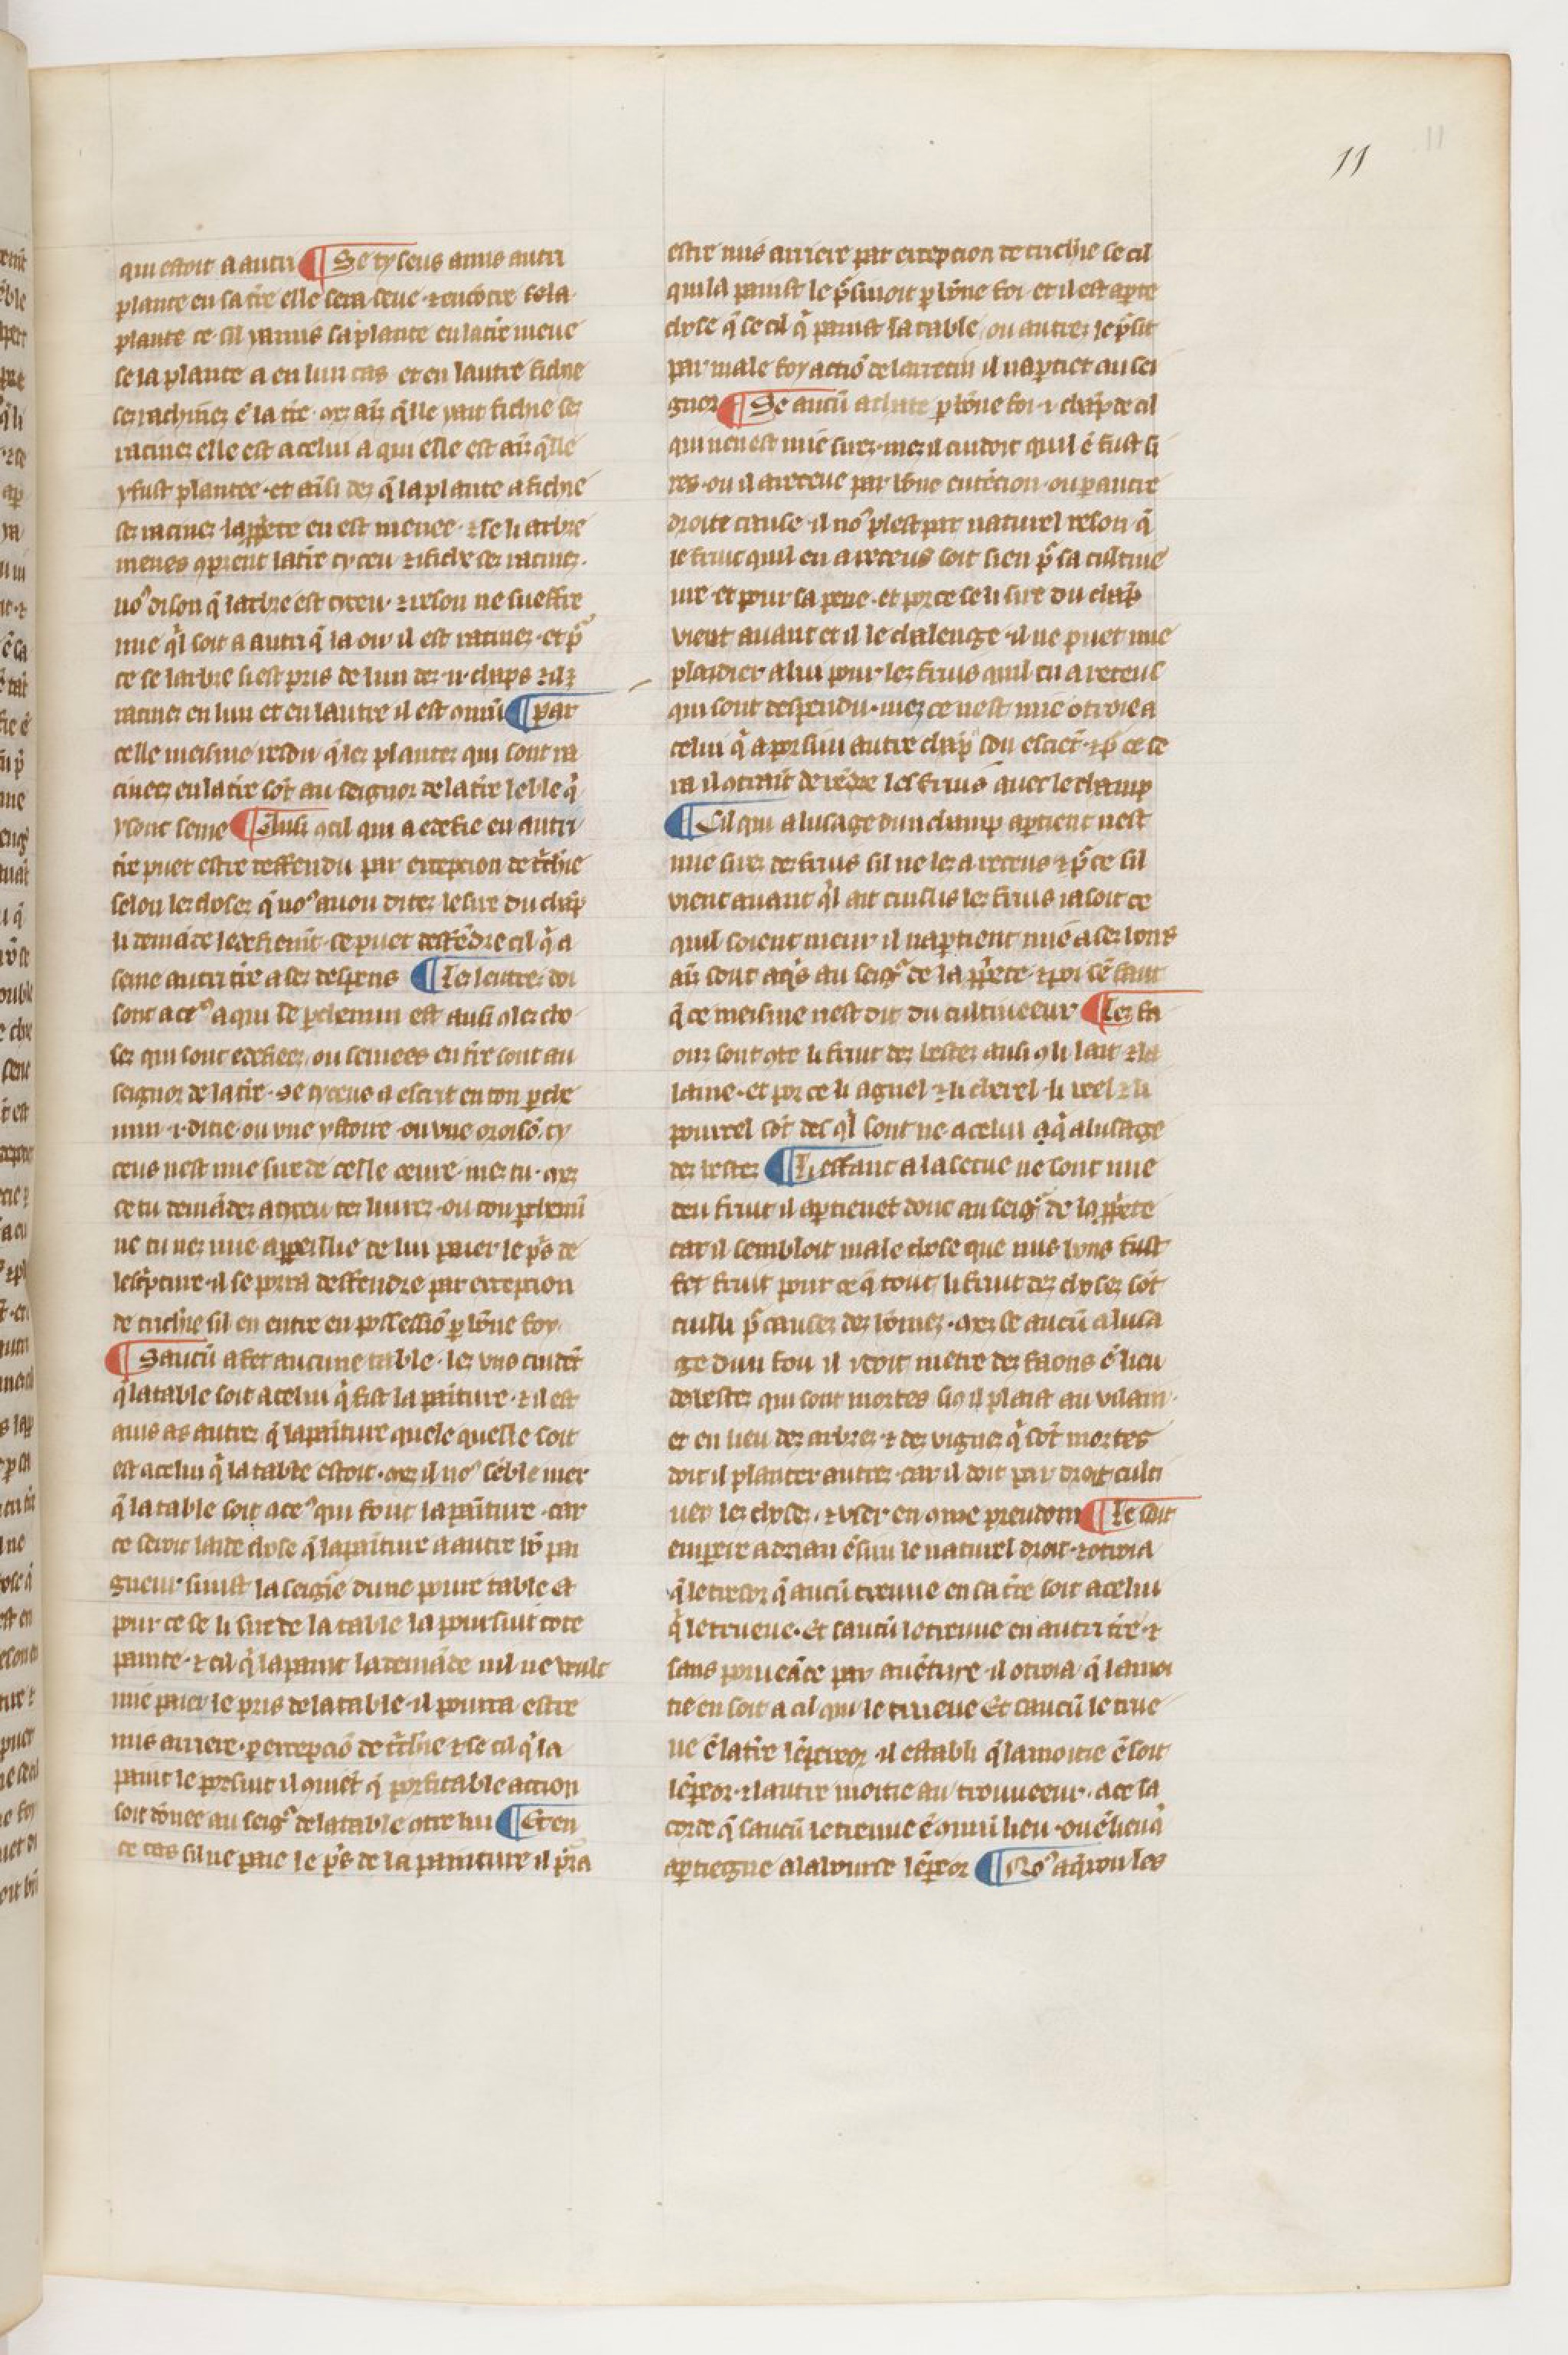 11
11
qui estoit a autri ¶ Se tyseus amis autri
plante en sa tr̃e elle sera seue ⁊ encõtre se la
plante ce sil iamis sa plante en la tr̃e meue
se la plante a en lun cas et en lautre fichie
ses rachinez ẽ la tr̃e mez aiz q̃lle yait fichie ses
racinez elle est a celui a qui elle est aiz q̃lle
y fust plantee et ausi dez q̃ la plante a fichie
ses racinez la ꝓp̃ete en est menee ⁊ se li arbre
menes ꝯprent la tr̃e tyceu ⁊ i fiche ses racinez
no⁹ dison q̃ larbre est tyceu ⁊ reson ne sueffre
mie q̃l soit a autri q̃ la ou il est racinez et p̃
ce se larbre siest pris de lun des ii chãps ⁊ a ses
racinez en lun et en lautre il est ꝯmũ ¶ par
celle meisme reson q̃ lez plantez qui sont ra
cineez en la tr̃e sõt au seignor de la tr̃e le ble q̃
y sont seme ¶ Ausi ꝯ cil qui a edefie en autri
tr̃e puet estre deffendu par exception de tr̃chie
selon lez chosez q̃ no⁹ auon ditez le sire du chãp
li demãde ledefiemt̃ se puet deffẽdre cil q̃ a
seme autri tr̃e a ses despens ¶ Les lettrez doi
sont a ce⁹ a qui le ꝑchemin est ausi ꝯ lez cho
ses qui sont edefieez ou semees en tr̃e sont au
seignor de la tr̃e Se tyceus a escrit en ton ꝑche
min ⁊ ditie ou vne ystoire ou vne oroisõ ty
ceus nest mie sire de celle oeuure mez tu mez
se tu demãdez a tyceu tes liurez ou ton ꝑchemĩ
ne tu nez mie appeillie de lui paier le p̃s de
lescripture il se porra deffendre par exception
de trichrie sil en entre en possessiõ ꝑ bõne foy
¶ Saucũ a fet aucune table les vns cuidẽt
q̃ la table soit a celui q̃ fist la painture ⁊ il est
auis as autrez q̃ la painture quele quelle soit
est a celui q̃ la table estoit mez il no⁹ sẽble miex
q̃ la table soit a ce⁹ qui font la painture car
ce seroit laide chose q̃ la painture a autre bõ pai
gneur siuist la seigñie dune poure table et
pour ce se li sire de la table la poursiut tote
painte ⁊ cil q̃ la paint la demãde nil ne veult
mie paier le pris de la table il pourra estre
mis arriere ꝑ excepciõ de tr̃chrie ⁊ se cil q̃ la
paint le porsiut il ꝯuiẽt q̃ porfitable action
soit dõnee au seig⁹ de la table ꝯtre lui ¶ Et en
ce cas sil ne paie le p̃s de la painture il p̃ra
estre mis arriere par excepcion de trichrie se cil
qui la painst le p̃siuoit ꝑ bõne foi et il est aperte
chose q̃ se cil q̃ painst la table ou autrez le p̃sit
par male foy actiõ de larrecin il napꝑtiẽt au sei
gnor ¶ Se aucũ achate ꝑ bõne foi ⁊ chãp de cil
qui nen est mie sires mez il cuidoit quil ẽ fust si
res ou il a receue par bõne entẽcion ou ꝑ autre
droite cause il no⁹ plest par naturel reson q̃
le fruit quil en a receus soit sien p̃ sa cultiue
ure et pour sa peine et por ce se li sire du chãp
vient auant et il le chalenge il ne puet mie
plaidier a lui pour lez fruis quil en a receus
qui sont despendu mez ce nest mie otroie a
celui q̃ a porsiui autre chãp son escient ⁊ p̃ ce se
ra il ꝯtraint de rẽdre les fruis auec le champ
¶ Cil qui a lusage dun champ apꝑtient nest
mie sirez des fruis sil ne lez a receus ⁊ p̃ ce sil
vient auant q̃l ait cuillis lez fruis ia soit ce
quil soient meur il napꝑtient mie a ses hoirs
aiz sont aq̃s au seig⁹ de la ꝓp̃ete ⁊ poi sẽ faut
q̃ ce meisme nest dit du cultiueeur ¶ Lez fa
ons sont ꝯte li fruit dez bestez ausi ꝯ li lait ⁊ la
laine et por ce li aignel ⁊ li cheurel li veel ⁊ li
pourcel sõt des q̃l sont ne a celui a q̃ a lusage
dez bestez ¶ Li effant a la serue ne sont mie
ceu fruit il apꝑtienẽt donc au seig⁹ de la ꝓp̃ete
car il sembloit male chose que nus hons fust
fet fruit pour ce q̃ tout li fruit dez chosez sõt
cuilli p̃ causez dez hõmez mez se aucũ a lusa
ge dun fou il i doit metre dez faons ẽ lieu
de bestez qui sont mortes si ꝯ il plaist au vilain
et en lieu dez arbrez ⁊ dez vignez q̃ sõt mortes
doit il planter autrez car il doit par droit culti
uer lez chosez ⁊ vser en ꝯme preudom ¶ Le soit
emperere adrian ẽsiui le naturel droit ⁊ otroia
q̃ le tresor q̃ aucũ treuue en sa tr̃e soit a celui
q̃ le trueue Et saucũ le treuue en autri tr̃e ⁊
sans porueãce par auẽture il otroia q̃ la moi
tie en soit a cil qui le trueue Et saucũ le true
ue ẽ la tr̃e lẽpereor il establi q̃ la moitie ẽ soit
lẽpeor ⁊ lautre moitie au trouueeur a ce sa
corde q̃ saucũ le treuue ẽ ꝯmũ lieu ou ẽ lieu q̃
apꝑtiegne a la bourse lẽpeor ¶ No⁹ aq̃ron les